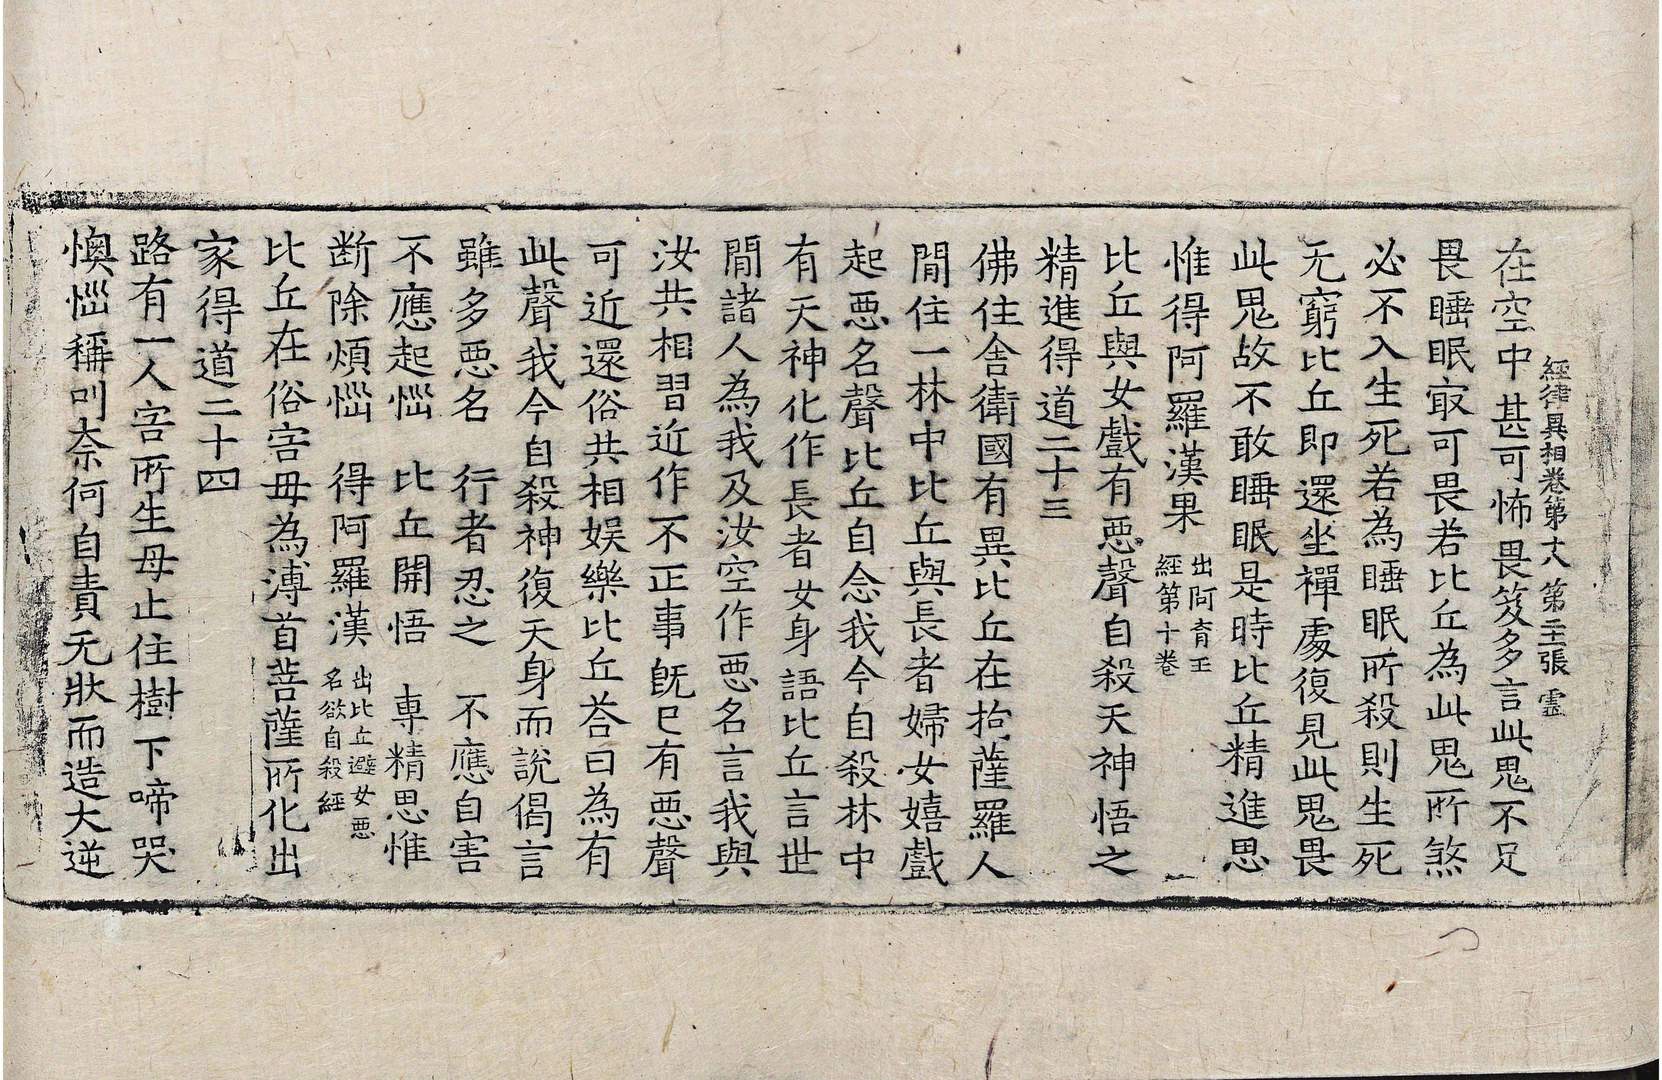 經律異相卷第十八 第二十一張 靈
在空中甚可怖畏笈多言此鬼不足
畏睡眠㝡可畏若比丘為此鬼所煞
必不入生死若為睡眠所殺則生死
无窮比丘即還坐禪處復見此鬼畏
此鬼故不敢睡眠是時比丘精進思
惟得阿羅漢果 出阿育王
經第十卷
比丘與女戲有惡聲自殺天神悟之
精進得道二十三
佛住舍衛國有異比丘在拘薩羅人
閒住一林中比丘與長者婦女嬉戲
起惡名聲比丘自念我今自殺林中
有天神化作長者女身語比丘言世
閒諸人為我及汝空作惡名言我與
汝共相習近作不正事旣已有惡聲
可近還俗共相娛樂比丘荅曰為有
此聲我今自殺神復天身而說偈言
雖多惡名 行者忍之 不應自害
不應起惱 比丘開悟 專精思惟
断除煩惱 得阿羅漢 出比丘避女惡
名欲自殺經
比丘在俗害母為溥首菩薩所化出
家得道二十四
路有一人害所生母止住樹下啼哭
懊惱稱叫奈何自責无狀而造大逆